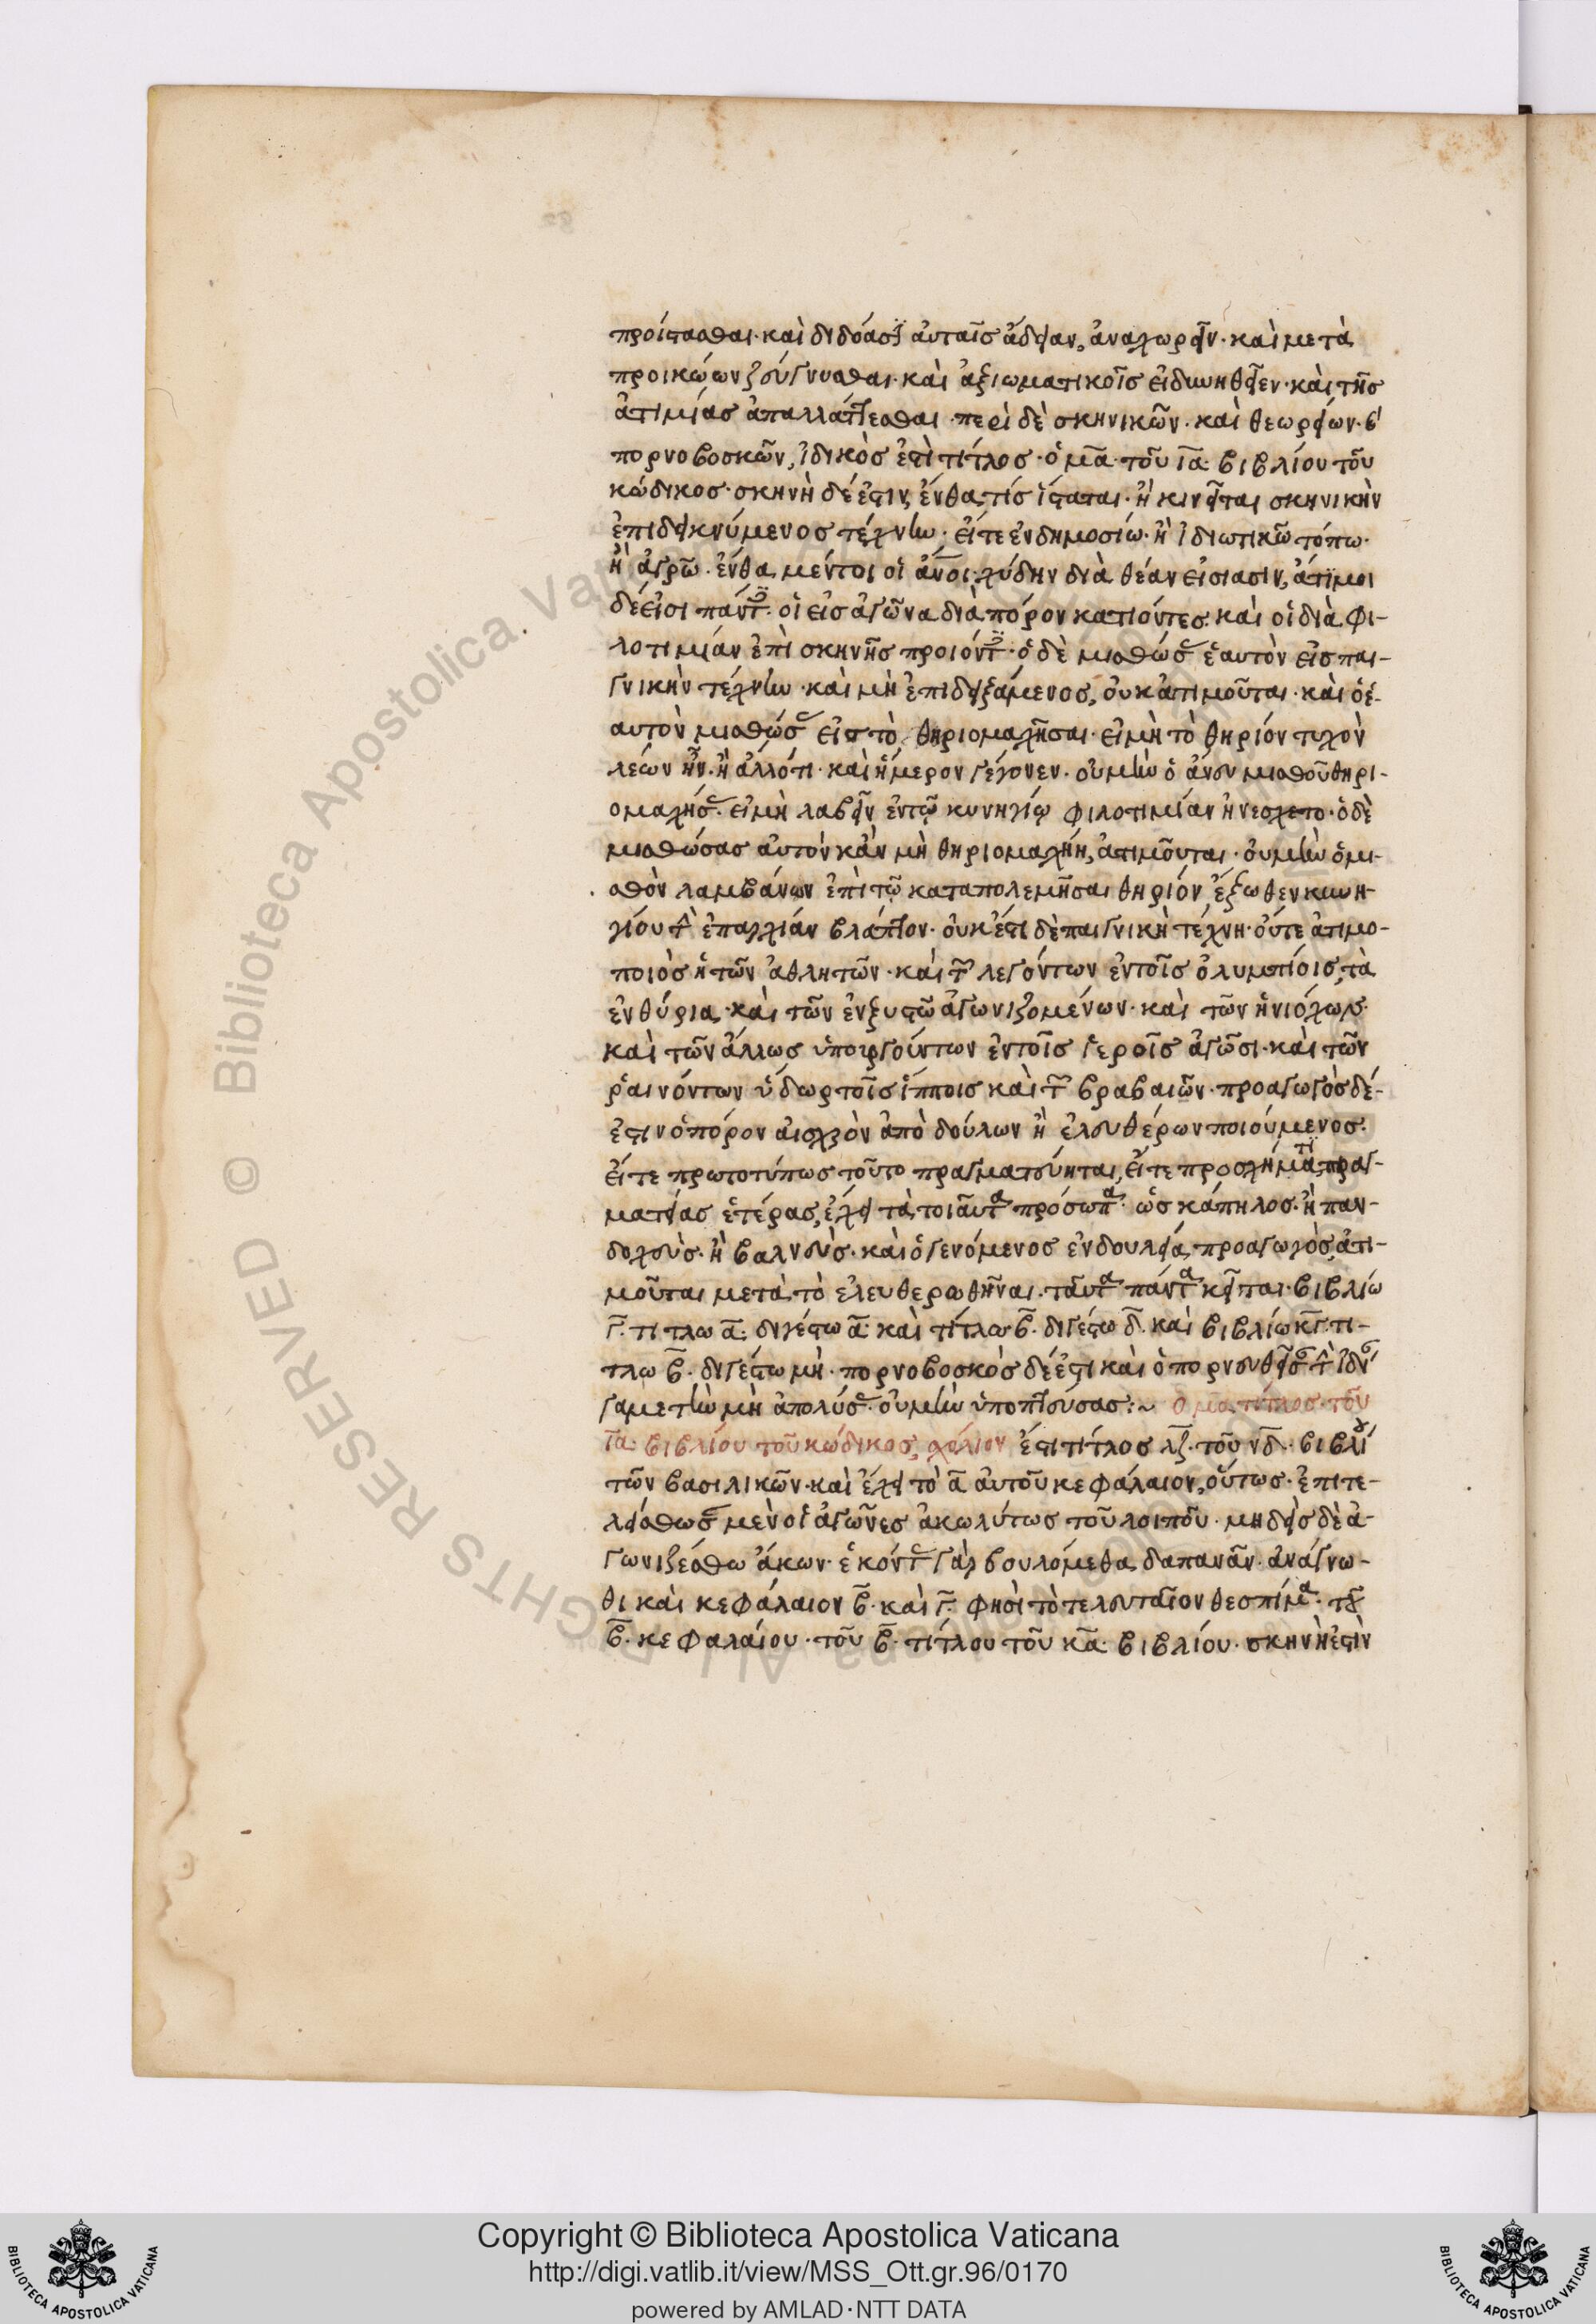 προΐστασθαι· καὶ διδόασϊ αὐταῖς ἄδειαν, ἀναχωρεῖν· καὶ μετὰ
προικώων ζεύγνυσθαι· καὶ ἀξιωματικοῖς εἰ βουληθεῖεν· καὶ τῆς
ἀτιμίας ἀπαλλάττεσθαι· περὶ δὲ σκηνικῶν· καὶ θεωρείων· καὶ
πορνοβοσκῶν, ἰδικὸς ἐστὶ τίτλος· ὁ μ̅α̅· τοῦ ι̅α̅· βιβλίου τοῦ
κώδικος· σκηνὴ δέ ἐστιν, ἔνθα τίς ἵσταται· ἢ κινεῖται σκηνικὴν
ἐπιδεικνύμενος τέχνην· εἴτε ἐν δημοσίω· ἢ ἰδιωτικῶ τόπω·
ἢ ἀγρῶ· ἔνθα μέντοι οἱ ἄν̅οι χύδην διὰ θέαν εἰσιασιν, ἄτιμοι
δέ εἰσι πάντες· οἱ εἰς ἀγῶνα διὰ πόρον κατιόντες· καὶ οἱ διὰ φι-
λοτιμίαν ἐπὶ σκηνῆς προιόντες· ὁ δὲ μισθώσας ἑαυτὸν εἰς παι-
γνικὴν τέχνην· καὶ μὴ ἐπιδειξάμενος, οὐκ ἀτιμοῦται· καὶ ὁ ἑ-
αυτὸν μισθώσας εἰς τὸ θηριομαχῆσαι· εἰ μὴ τὸ θηρίον τυχὸν
λέων ἦν· ἢ ἀλλότι· καὶ ἥμερον γέγονεν· οὐ μὴν ὁ ἄνευ μισθοῦ θηρι-
ομαχήσας· εἰ μὴ λαβεῖν ἐν τῷ κυνηγίῳ φιλοτιμίαν ἠνέσχετο· ὁ δὲ
μισθώσας αὐτὸν κἂν μὴ θηριομαχήη, ἀτιμοῦται· οὐ μὴν ὁ μι-
σθὸν λαμβάνων ἐπὶ τῷ καταπολεμῆσαι θηρίον, ἔξωθεν κυνη-
γίου τὴν ἐπαρχίαν βλάπτον· οὐκ ἔστι δὲ παιγνικὴ τέχνη· οὔτε ἀτιμο-
ποιὸς ἡ τῶν ἀθλητῶν· καὶ τῶν λεγόντων ἐν τοῖς ὀλυμπίοις, τὰ
ἐνθύρια, καὶ τῶν ἐν ξυστῶ ἀγωνιζομένων· καὶ τῶν ἡνιόχων·
καὶ τῶν ἄλλως ὑπουργούντων ἐν τοῖς ἱεροῖς ἀγῶσι· καὶ τῶν
ῥαινόντων ὕδωρ τοῖς ἵπποις καὶ τῶν βραβαιῶν· προαγωγὸς δέ-
ἐστιν ὁ πόρον αἰσχρὸν ἀπὸ δούλων ἢ ἐλευθέρων ποιούμενος·
εἴτε πρωτοτύπως τοῦτο πραγματεύηται, εἴτε προσχήματι πραγ-
ματείας ἑτέρας, ἔχει τὰ τοιαῦτα πρόσωπα· ὡς κάπηλος· ἢ παν-
δοχεὺς· ἢ βαλνεὺς· καὶ ὁ γενόμενος ἐν δουλεία, προαγωγὸς, ἀτι-
μοῦται μετὰ τὸ ἐλευθερωθῆναι· ταῦτα πάντα κεῖται· βιβλίω
γ̅· τιτλω α̅· διγέστω α̅· καὶ τίτλω β̅· διγέστω δ̅· καὶ βιβλίω κ̅γ̅· τι-
τλω β̅· διγέστω μὴ· πορνοβοσκὸς δέ ἐστι καὶ ὁ πορνευθεῖσαν τὴν ἰδίαν
γαμετὴν μὴ ἀπολύσας· οὐ μὴν ὑποπτεύσας:~ ὁ μ̅α̅ τίτλος· τοῦ
ι̅α̅· βιβλίου τοῦ κώδικος, σχόλιον ἐστι τίτλος λ̅ζ̅· τοῦ ν̅δ̅· βιβλίου
τῶν βασιλικῶν· καὶ ἔχει τὸ α̅ αὐτοῦ κεφάλαιον, οὕτως· ἐπιτε-
λείσθωσαν μὲν οἱ ἀγῶνες ἀκωλύτως τοῦ λοιποῦ· μηδεὶς δὲ ἀ-
γωνιζέσθω ἄκων· ἑκόντας γὰρ βουλόμεθα δαπανᾶν· ἀνάγνω-
θι καὶ κεφάλαιον β̅· καὶ γ̅· φησὶ τὸ τελευταῖον θεσπίμα· τοῦ
β̅· κεφαλαίου· τοῦ β̅· τίτλου τοῦ κ̅α̅· βιβλίου· σκηνὴ ἐστὶν
Copyright © Biblioteca Apostolica Vaticana
http://digi.vatlib.it/view/MSS_Ott.gr.96/0170
powered by AMLAD·NTT DATA